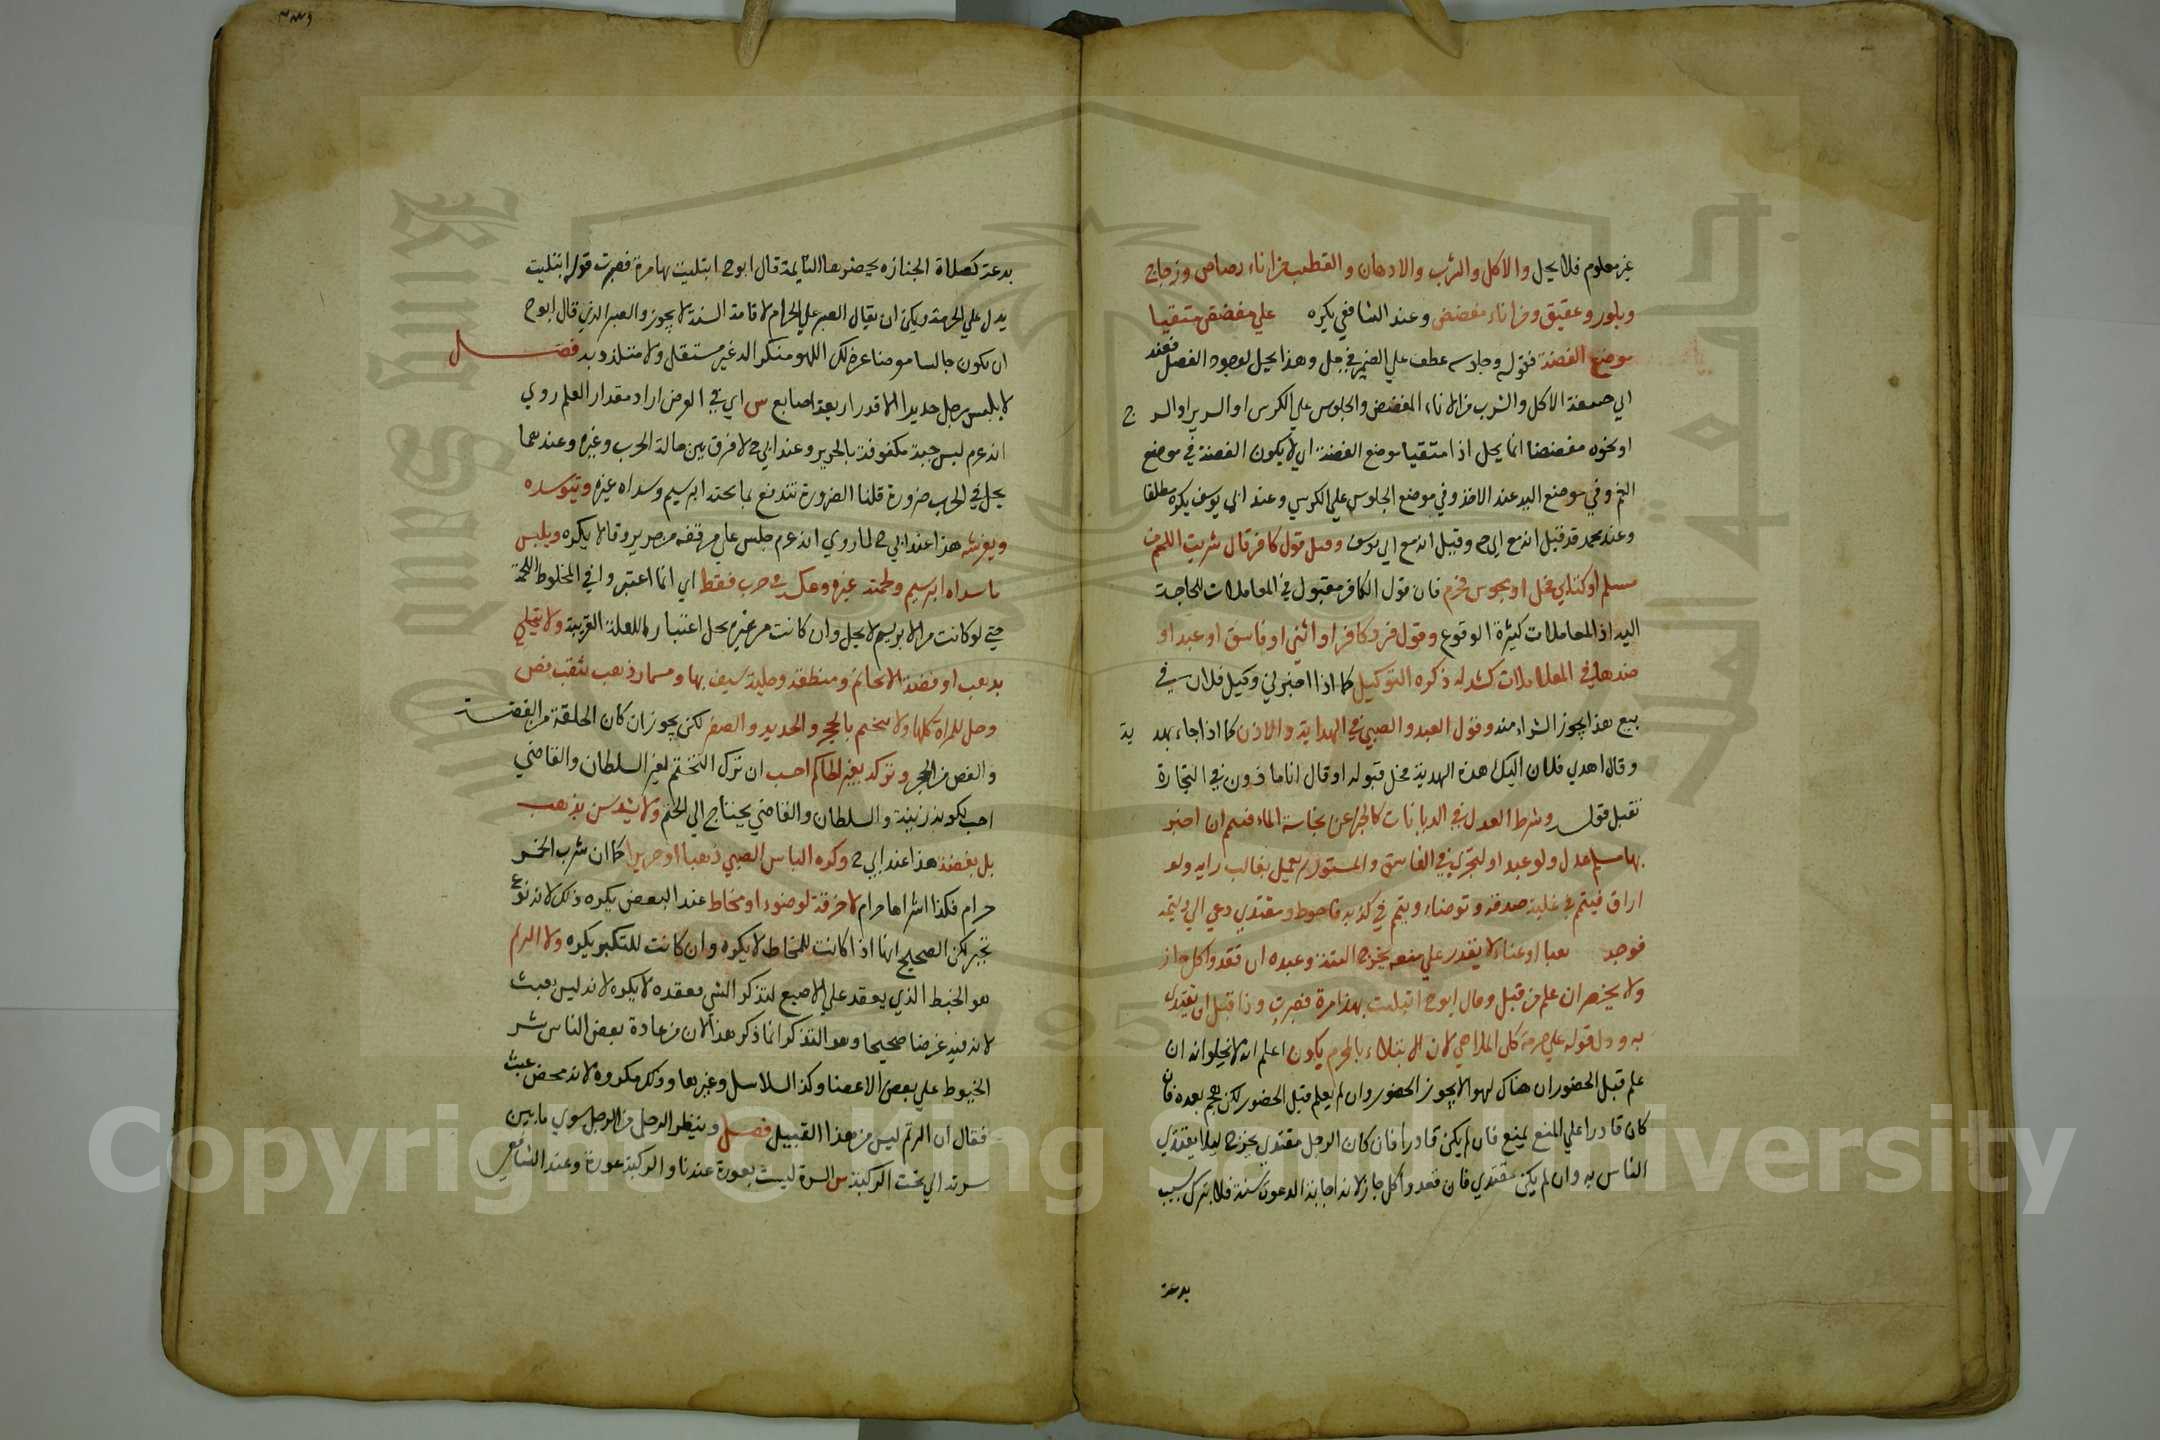 غير معلوم فلا يحل والاكل والشرب والادهان والتطيب من اناء رصاص وزجاج
وبلور وعقيق ومن اناء مفضض وعند الشافعي يكره على مفضض متقيا
موضع الفضة فقوله وجلوسه عطف على الضمير في حل وهذا يحل لوجود الفصل فعند
ابي حنيفة الاكل والشرب من الاناء المفضض والجلوس على الكرسي او السرير او السرج
او نحوه مفضضا انما يحل اذا متقيا موضع الفضة اي لا يكون الفضة في موضع
الفم وفي موضع اليد عند الاخذ وفي موضع الجلوس على الكرسي وعند ابي يوسف يكره مطلقا
وعند محمد قد قيل انه مع ابي ح وقيل انه مع ابي يوسف وقبل قول كافر قال شريت اللحم من
مسلم او كتابي فحل او مجوس فحرم فان قول الكافر مقبول في المعاملات للحاجة
اليه اذ المعاملات كثيرة الوقوع وقول فرد كافر او انثى او فاسق او عبد او
ضدها في المعاملات كشراء ذكره التوكيل كما اذا اخبر اني وكيل فلان في
بيع هذا يجوز الشراء منه وقول العبد والصبي في الهداية والاذن كما اذا جاء بهدية
وقال اهدى فلان اليك هذه الهدية فحل قبوله او قال انا ماذون في التجارة
تقبل قوله وشرط العدل في الديانات كالخبر عن نجاسة الماء فتيمم ان اخبر
بها مسلم عدل ولو عبدا وليتحرى في الفاسق والمستور ثم يعمل بغالب رايه ولو
اراق فيتم في غلبة صدقه وتوضاء ويتم في كذبه فاحوط ومقتدى دعي الى وليمة
فوجد لعبا او غناء لا يقدر على منعه يخرج البتة وغيره ان قعد واكل جاز
ولا يحضر ان علم من قبل وقال ابو ح ابتليت بهذا مرة فصبرت وذا قبل ان يقتدى
به ودل قوله على حرمة كل الملاهي لان الابتلاء بالمحرم يكون اعلم انه لا يخلو انه ان
علم قبل الحضور ان هناك لهوا لا يجوز الحضور وان لم يعلم قبل الحضور لكن هجم بعده فان
كان قادرا على المنع يمنع فان لم يكن قادرا فان كان الرجل مقتدى يخرج ليلا يقتدى
الناس به وان لم يكن مقتدى فان قعد واكل جاز لانه اجابة الدعوة سنة فلا يترك بسبب
بدعة
بدعة كصلاة الجنازة يحضرها النايحة قال ابو ح ابتليت بها مرة فصبرت قوله ابتليت
يدل على الحرمة ويمكن ان يقال الصبر على الحرام لاقامة السنة لا يجوز والصبر الذي قال ابو ح
ان يكون جالسا معرضا عن ذلك اللهو منكرا له غير مشتغل ولا متلذذ به فصل
لا يلبس رجل حريرا الا قدر اربعة اصابع س اي في العرض اراد مقدار العلم روي
انه عم لبس جبة مكفوفة بالحرير وعند ابي ح لا فرق بين حالة الحرب وغيره وعندهما
يحل في الحرب ضرورة قلنا الضرورة تندفع بما لحمته ابريسم وسداه غيره ويتوسده
ويفرشه هذا عند ابي ح لما روي انه عم جلس على مرفقة من حرير وقالا يكره ويلبس
ما سداه ابريسم ولحمته غيره وعكسه في حرب فقط اي انما اعتبروا في المخلوط اللحمة
حتى لو كانت من الابريسم لا يحل وان كانت من غيره يحل اعتبارا للعلة القريبة ولا يتحلى
بذهب او فضة الا بخاتم ومنطقة وحلية سيف بها ومسمار ذهب لثقب فص
وحل للمراة كلها ولا يتختم بالحجر والحديد والصفر لكن يجوز ان كان الحلقة من الفضة
والفص من الحجر وتركه لغير الحاكم احب ان ترك التختم لغير السلطان والقاضي
احب لكونه زينة والسلطان والقاضي يحتاج الى الختم ولا يشد سن بذهب
بل بفضة هذا عند ابي ح وكره الباس الصبي ذهبا او حريرا كما ان شرب الخمر
حرام فكذا اشرابها حرام لا خرقة لوضوء او مخاط عند البعض يكره ذلك لانه نوع
تجبر لكن الصحيح انها اذا كانت للمخاط لا يكره وان كانت للتكبر يكره ولا الرتم
هو الخيط الذي يعقد على الاصبع لتذكر الشي فعقده لا يكره لانه ليس بعبث
لان فيه غرضا صحيحا وهو التذكر انما ذكر هذا لان من عادة بعض الناس شد
الخيوط على بعض الاعضا وكذا السلاسل وغيرها وذلك مكروه لانه محض عبث
فقال ان الرتم ليس من هذا القبيل فصل وينظر الرجل من الرجل سوى ما بين
سرته الى تحت الركبة س السرة ليست بعورة عندنا والركبة عورة وعند الشافعي
Copyright © King Saud University